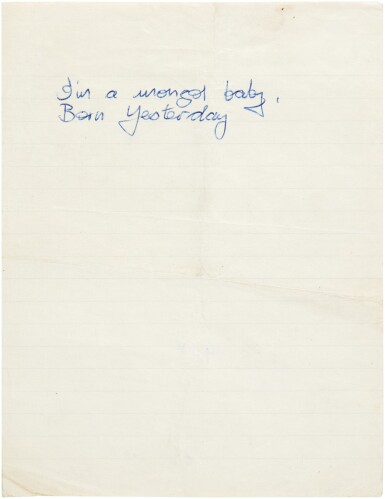 I'm a mongol baby.
Born Yesterday